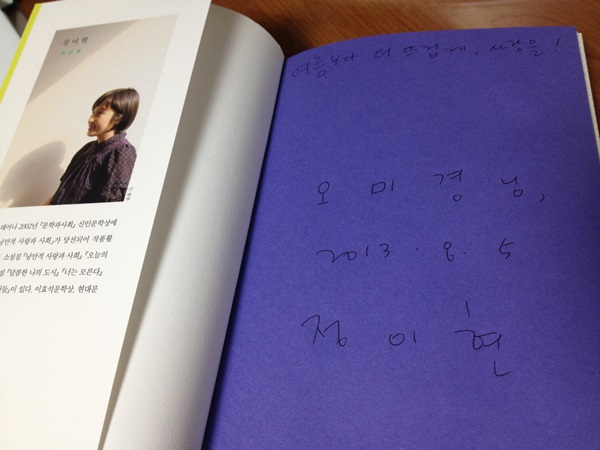 정이현
태어나 2002년 『문학과사회』 신인문학상에
낭만적 사랑과 사회」가 당선되어 작품활
소설집 『낭만적 사랑과 사회』 『오늘의
설 『달콤한 나의 도시』 『너는 모른다』
들』이 있다. 이효석문학상, 현대문
여름보다 더 뜨겁게, 사랑을!
오미경님,
2013. 8. 5
정이현